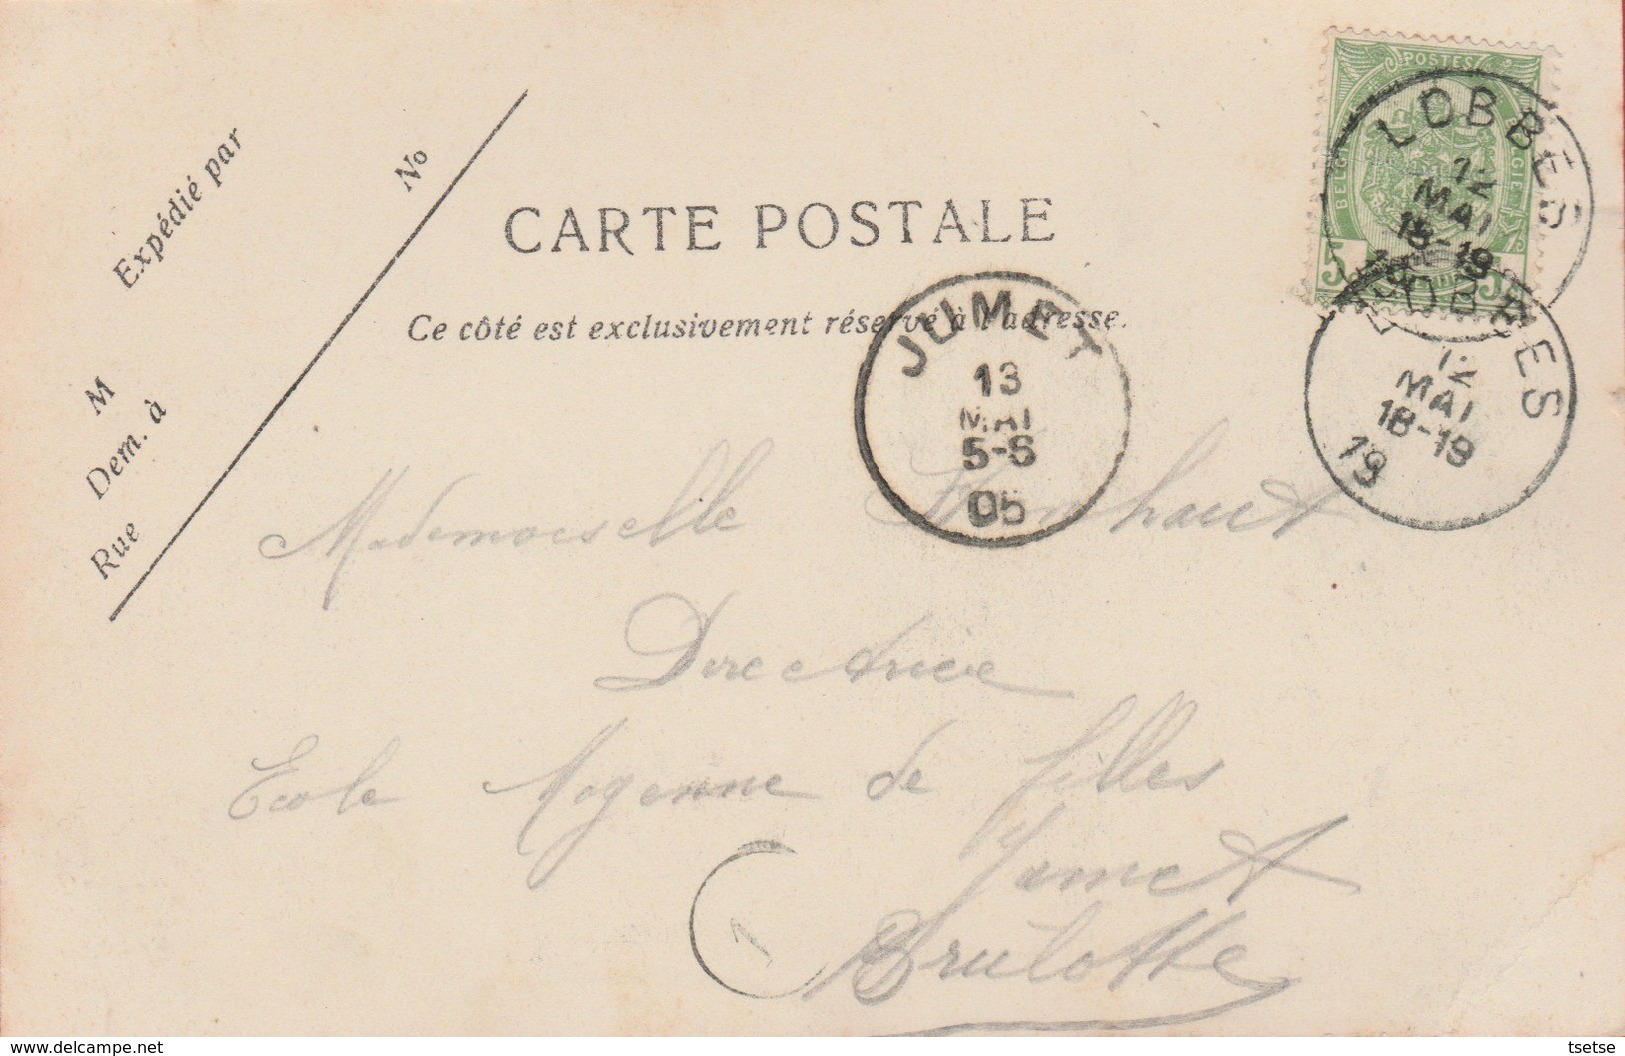 Expédié par
No
M
Dem. à
Rue
CARTE POSTALE
Ce côté est exclusivement réservé à l'adresse.
POSTES
BELG
5
LOBBES
12
MAI
18-19
LOBBES
12
MAI
18-19
19
JUMET
13
MAI
5-6
05
Mademoiselle
Directrice
Ecole Moyenne de filles
Jumet
Brûlotte
1
delcampe.net
tsetse